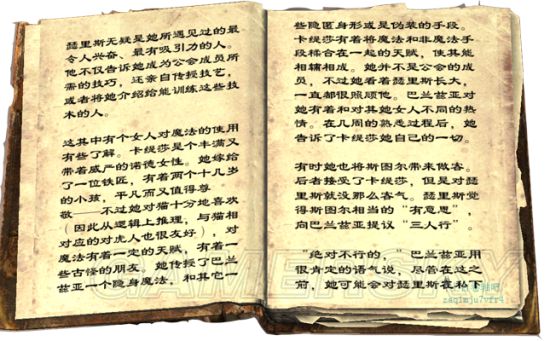 瑟里斯无疑是她所遇见过的最
令人兴奋、最有吸引力的人。
他不仅告诉她成为公会成员所
需的技巧，还亲自传授技艺，
或者将她介绍给能训练这些技
术的人。
这其中有个女人对魔法的使用
有些了解。卡缇莎是个丰满又
带着威严的诺德女性。她嫁给
了一位铁匠，有着两个十几岁
的小孩，平凡而又值得尊
敬——不过她对猫十分地喜欢
（因此从逻辑上推理，与猫相
对应的对虎人也很友好），对
魔法有着一定的天赋，有着一
些古怪的朋友。她传授了巴兰
兹亚一个隐身魔法，和其它一
些隐匿身形或是伪装的手段。
卡缇莎有着将魔法和非魔法手
段糅合在一起的天赋，使其能
相辅相成。她并不是公会的成
员，不过她看着瑟里斯长大，
一直都很照顾他。巴兰兹亚对
她有着和对其她女人不同的热
情。在几周的熟悉过程后，她
告诉了卡缇莎她自己的一切。
有时她也将斯图尔带来做客。
后者接受了卡缇莎，但是对瑟
里斯就没那么客气。瑟里斯觉
得斯图尔相当的“有意思”，
向巴兰兹亚提议“三人行”。
“绝对不行的，”巴兰兹亚用
很肯定的语气说，尽管在这之
前，她可能会对瑟里斯在私下
GAMERSKY
zaqimju7vfr4